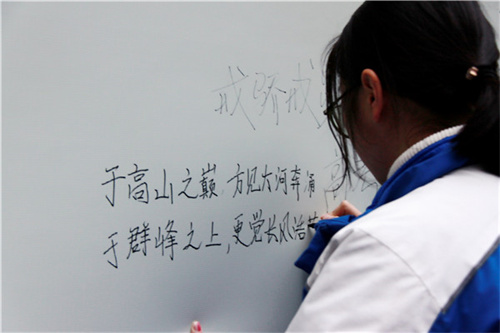 戒骄戒
于高山之巅 方见大河奔涌
于群峰之上,更觉长风浩